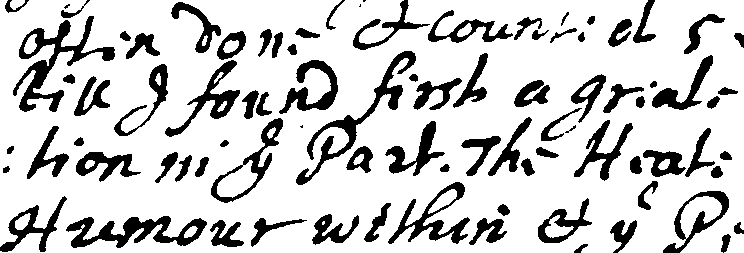 often done & counted 5
till I found first a greate
:tion in yͤ Part. The Heate
Humour within & yͤ Pe